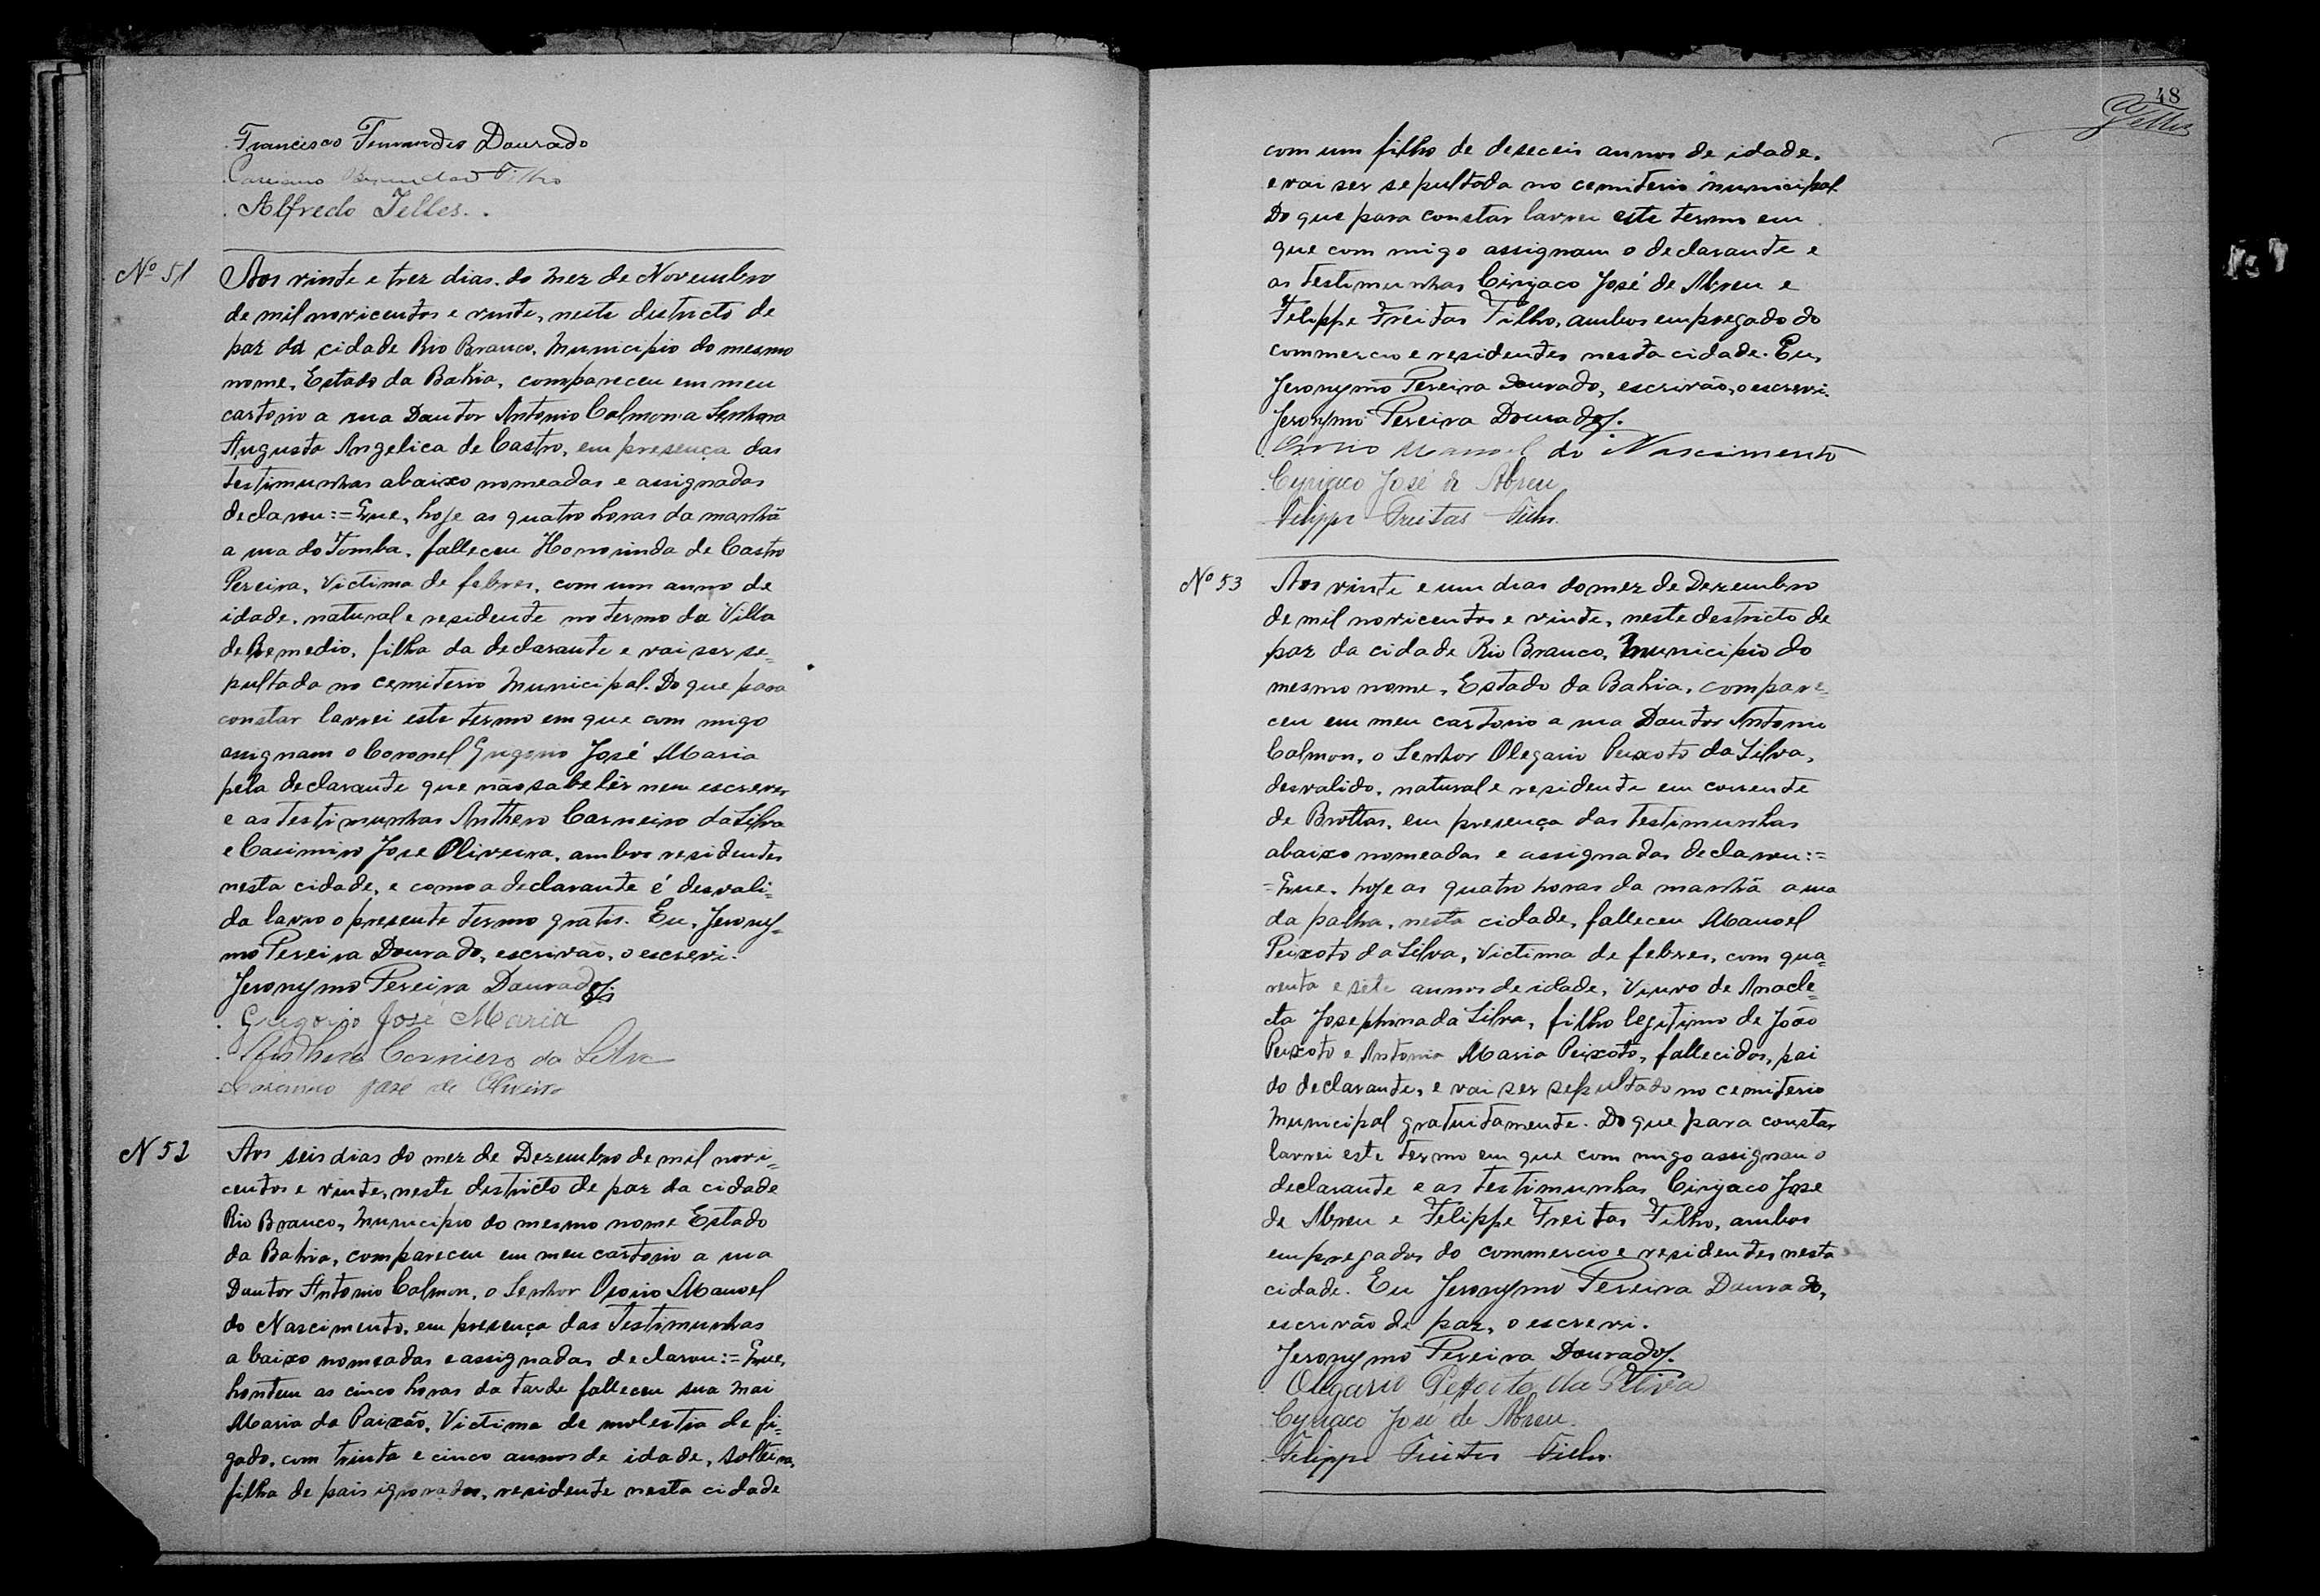 Francisco Fernandes Dourado
Filho
Alfredo Telles.
Nº 51
Aos vinte e trez dias do mez de Novembro
de mil novicentos e vinte, neste districto de
paz da cidade Rio Branco, Municipio do mesmo
nome, Estado da Bahia, compareceu em meu
cartorio a rua Doutor Antonio Calmon a Senhora
Augusta Angelica de Castro, em presença das
testimunhas abaixo nomeadas e assignadas
declarou:= Que, hoje as quatro horas da manhã
a rua do Tomba, falleceu Honorinda de Castro
Pereira, Victima de febres, com um anno de
idade, natural e residente no termo da Villa
de Remedio, filha da declarante e vai ser se=
pultada no cemiterio Municipal. Do que para
constar lavrei este termo em que com migo
assignam o Coronel Gregorio José Maria
pela declarante que não sabe lêr nem escrever
e as testimunhas Anthero Carneiro da Silva
e Casimiro Jose Oliveira, ambos residentes
nesta cidade, e como a declarante é desvali=
da lavro o presente termo gratis. Eu, Jerony=
mo Pereira Dourado, escrivão, o escrevi.
Jeronymo Pereira Dourado
Gregorio José Maria
Anthero Carneiro da Silva
Casimiro José de Oliveira
N 52
Aos seis dias do mez de Dezembro de mil novi=
centos e vinte, neste districto de paz da cidade
Rio Branco, Municipio do mesmo nome Estado
da Bahia, compareceu em meu cartorio a rua
Doutor Antonio Calmon, o Senhor Osorio Manoel
do Nascimento, em presença das Testimunhas
abaixo nomeadas e assignadas declarou:= Que,
hontem as cinco horas da tarde falleceu sua mai
Maria da Paixão, Victima de molestia de fi=
gado, com trinta e cinco annos de idade, solteira,
filha de pais ignorados, residente nesta cidade
48
Telles
com um filho de deseceis annos de idade,
e vai ser sepultada no cemiterio municipal.
Do que para constar lavrei este termo em
que com migo assignam o declarante e
as testimunhas Ciryaco José de Abreu e
Felippe Freitas Filho, ambos empregado do
commercio e residentes nesta cidade. Eu,
Jeronymo Pereira Dourado, escrivão, o escrevi.
Jeronymo Pereira Dourado.
Osorio Manoel do Nascimento
Cyriaco José de Abreu
Felippe Freitas Filho.
Nº 53
Aos vinte e um dias do mez de Dezembro
de mil novicentos e vinte, neste destricto de
paz da cidade Rio Branco, Municipio do
mesmo nome, Estado da Bahia, compare=
ceu em meu cartorio a rua Doutor Antonio
Calmon, o Senhor Olegario Peixoto da Silva,
desvalido, natural e residente em corrente
de Brottas, em presença das testimunhas
abaixo nomeadas e assignadas declarou:=
=Que, hoje as quatro horas da manhã a rua
da palha, nesta cidade, falleceu Manoel
Peixoto da Silva, Victima de febres, com qua=
renta e sete annos de idade, Viuvo de Anacle=
ta Josephina da Silva, filho legitimo de João
Peixoto e Antonia Maria Peixoto, fallecidos, pai
do declarante, e vai ser sepultado no cemiterio
Municipal gratuitamente. Do que para constar
lavrei este termo em que com migo assignam o
declarante e as testimunhas Ciryaco Jose
de Abreu e Felippe Freitas Filho, ambos
empregados do commercio e residentes nesta
cidade. Eu Jeronymo Pereira Dourado,
escrivão de paz, o escrevi.
Jeronymo Pereira Dourado.
Olegario Peixoto da Silva
Cyriaco José de Abreu.
Felippe Freitas Filho.